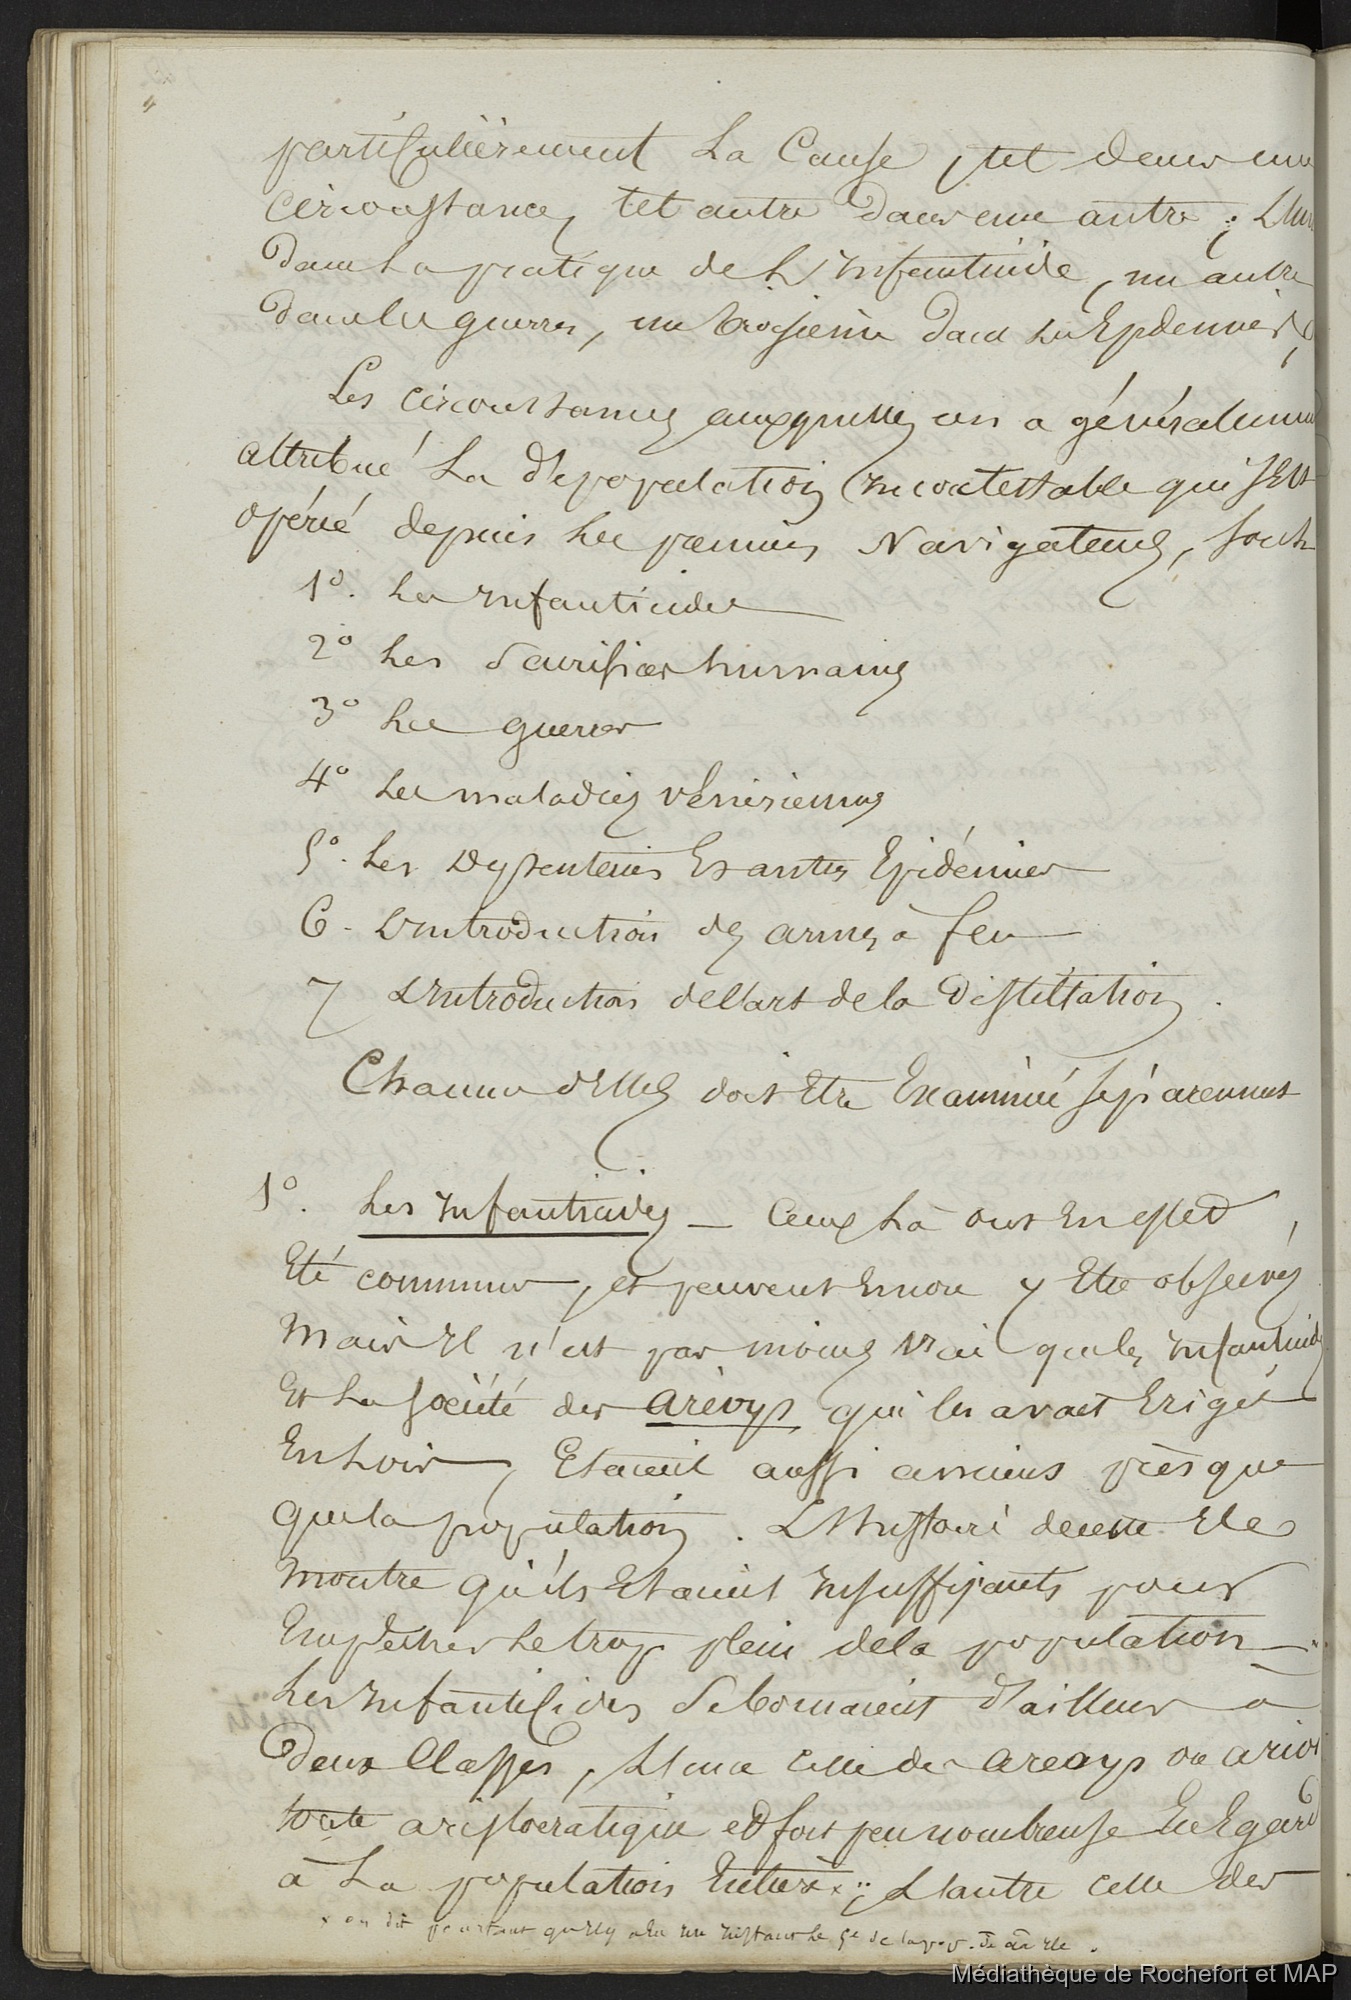 4
particulièrement la Cause, tel dans une
circonstance, tel autre dans une autre; L'un
dans la pratique de L'Infanticide, un autre
dans les guerres, un troisième dans les Epidemies,
Les circonstances auxquelles on a généralement
attribué La dépopulation incontestable qui s'est
opérée depuis les premiers Navigateurs, sont
1º. les infanticides
2º Les Sacrifices humains
3º Les guerres
4º Les maladies vénériennes
5º. Les Dyssenteries Et autres Epidémies
6 - L'introduction des armes à feu
7 L'introduction de l'art de la Distillation.
Chacune d'Elles doit Etre Examinée séparément
1º. Les infanticides — Ceux là ont En effet
Eté communs, et peuvent Encore y Etre observés
Mais Il n'est pas moins vrai que les infanticides
Et La société des Aréoys qui les avait Erigés
En Loix, Etaient aussi anciens presque
que la population. L'Histoire de cette Ile
montre qu'ils Etaient insuffisants pour
Empêcher le trop plein de la population —
Les infanticides se bornaient d'ailleurs à
deux Classes, L'une celle des areoys ou arioi
toute aristocratique et fort peu nombreuse En Egard
à La population Entière x; L'autre celle des
x on dit pourtant qu'il y a eu un instant le 5e de la pop. de cette Ile.
Médiathèque de Rochefort et MAP